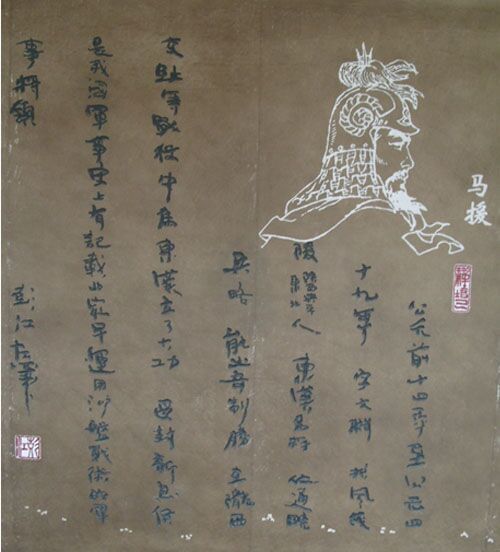 马援
公元前十四年至公元四
十九年 字文渊 扶风茂
陵 陕西兴平东北 人 东汉名将 他通晓
兵略 能出奇制胜 在陇西
交趾等战役中为东汉立了大功 封新息侯
是我国军事史上有记载最早运用沙盘战术的军
事将领
彭江